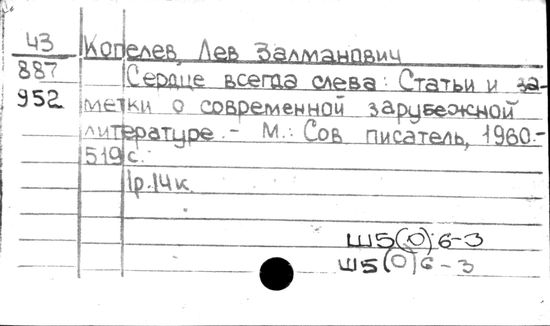 43 Копелев Лев Залманович
887 Сердце всегда слева: Статьи и за-
952 метки о современной зарубежной
литературе. - М.: Сов писатель, 1960.-
519 с.
1р.14к.
Ш5(0)6-3
Ш5(0)6-3